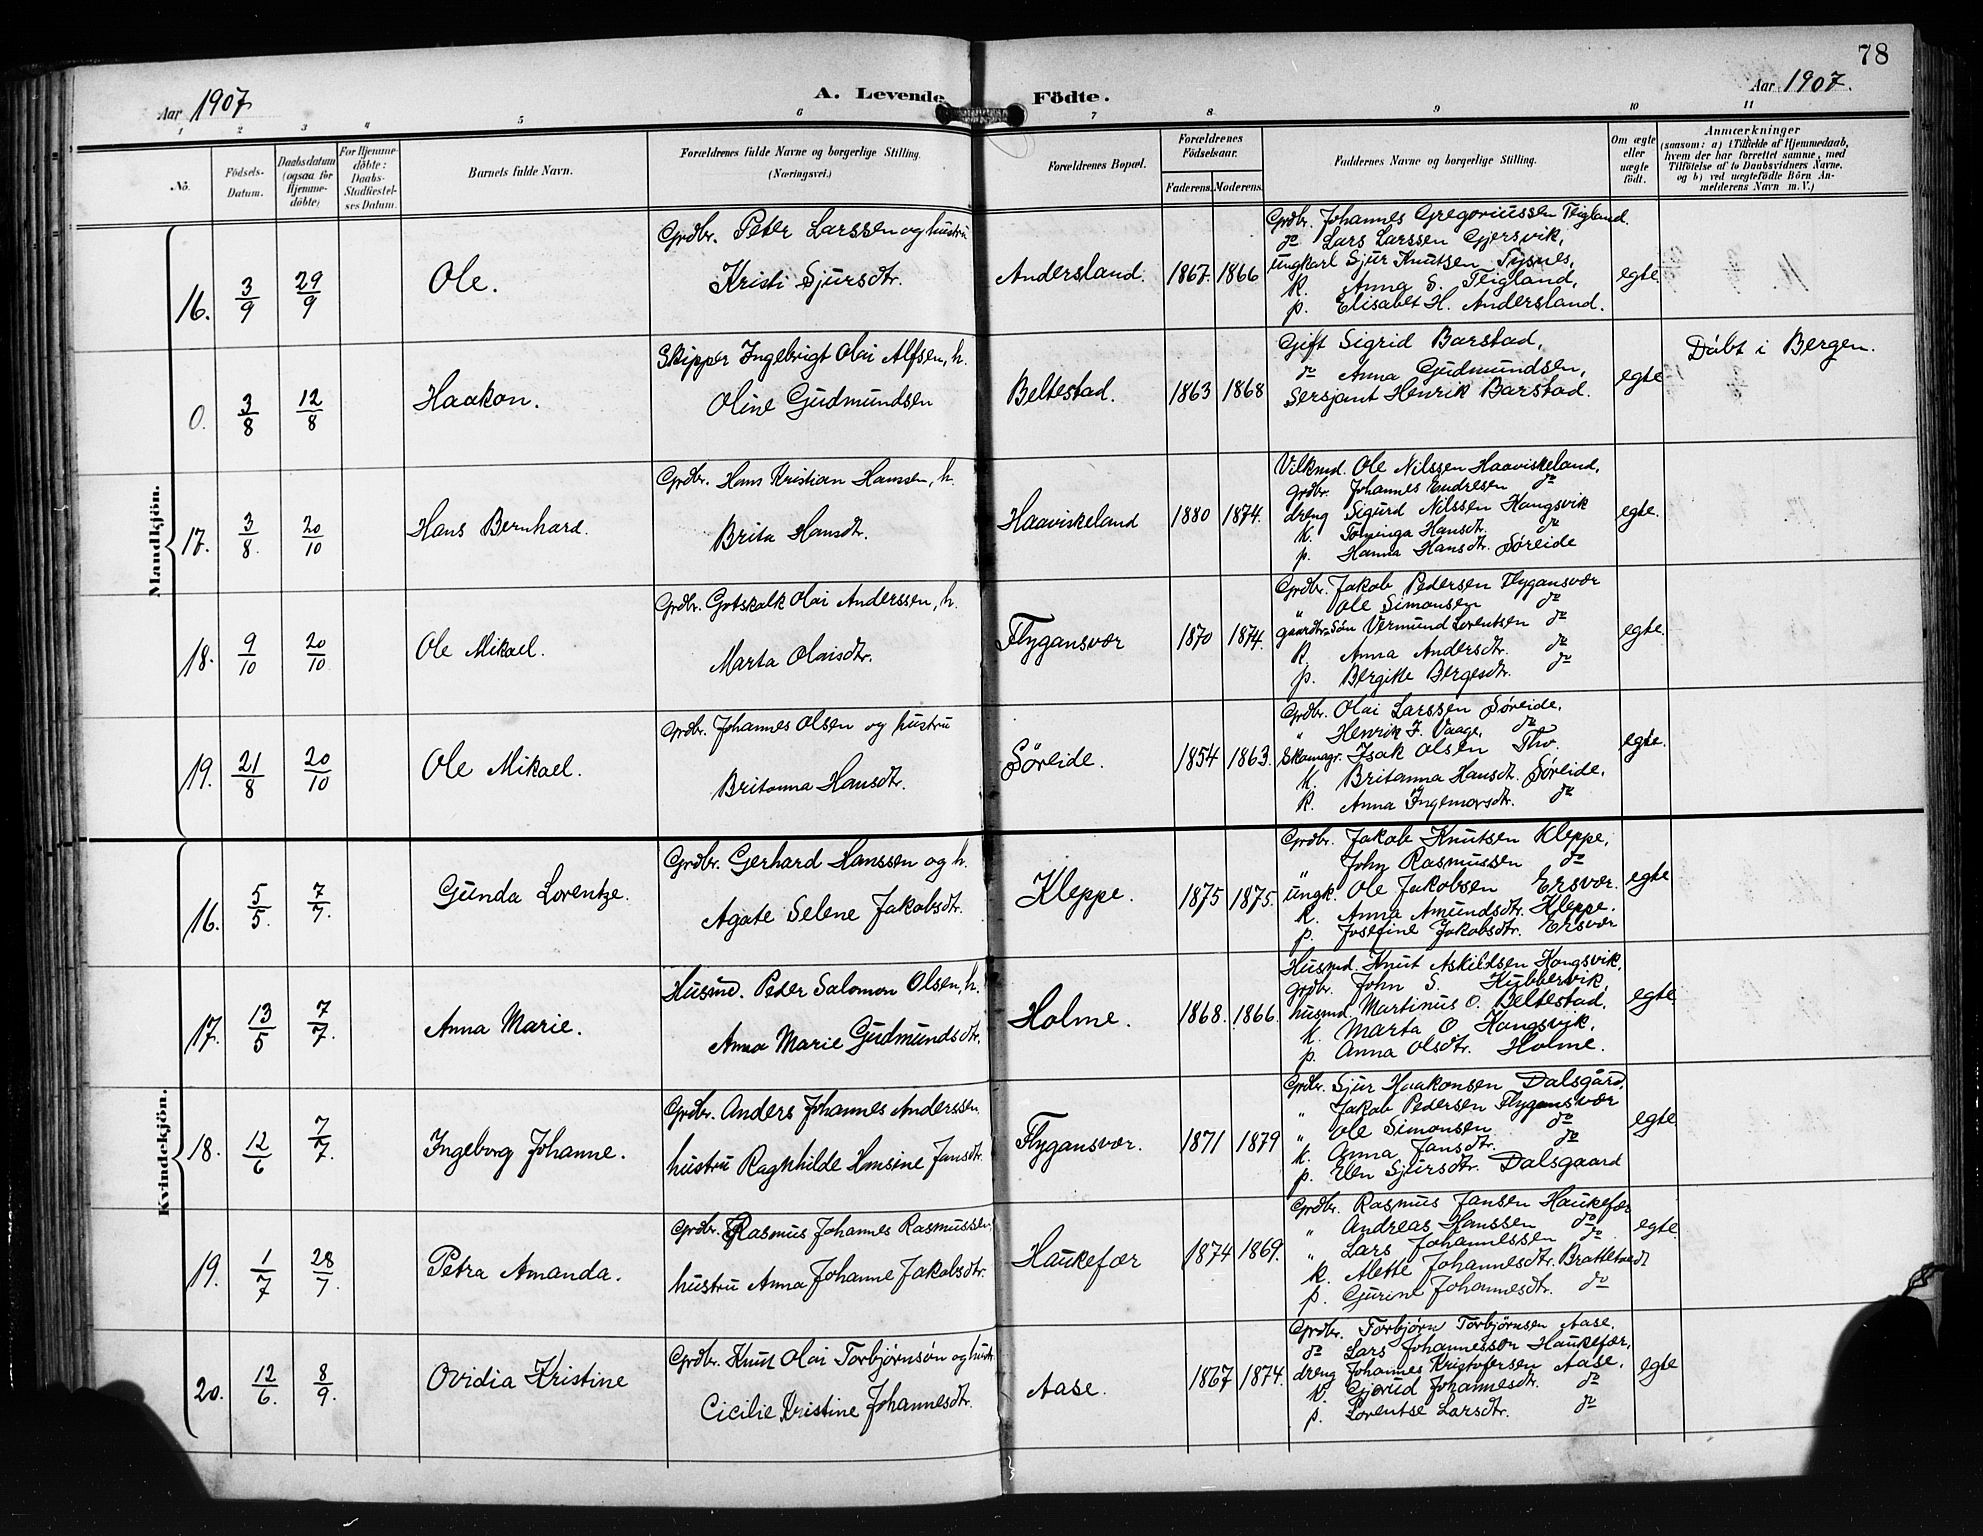 78
Aar 1907
A. Levende Födte.
Aar 1907.
1 2 3 4 5 6 7 8 9 10 11
No.
Födsels-Datum.
Daabsdatum (ogsaa for Hjemme-döbte)
For Hjemme-döbte: Daabs-Stadfæstel-ses Datum.
Barnets fulde Navn.
Forældrenes fulde Navne og borgerlige Stilling.
(Næringsvei.)
Forældrenes Bopæl.
Forældrenes Födselsaar.
Faderens. Moderens.
Faddernes Navne og borgerlige Stilling.
Om ægte eller uægte födt.
Anmærkninger
(saasom: a) i Tilfælde af Hjemmedaab,
hvem der har forrettet samme, med
Tilföielse af to Daabsvidners Navne.
og b) ved uægtefödte Börn An-
melderens Navn m. V.)
Mandkjön.
16. 3/9 29/9 Ole.
Grdbr. Peter Larssen og hustru
Kristi Sjursdtr.
Andersland. 1867. 1866
Grdbr. Johannes Gregoriussen Teigland.
do Lars Larssen Gjersvik,
ungkarl Sjur Knutsen Tysnes,
k. Anna S. Teigland,
p. Elisabet H. Andersland.
egte.
0. 3/8 12/8 Haakon.
Skipper Ingebrigt Olai Alfsen, h.
Oline Gudmundsen
Beltestad. 1863 1868
Gift Sigrid Barstad,
do Anna Gudmundsen,
Sersjant Henrik Barstad.
egte
Döbt i Bergen.
17. 3/8. 20/10 Hans Bernhard.
Grdbr. Hans Kristian Hanssen, h.
Brita Hansdtr.
Haaviskeland 1880 1874.
Vilkmd. Ole Nilssen Haaviskeland,
grdbr. Johannes Endresen do
dreng Sigurd Nilssen Hangsvik
k. Hansdtr. do
p. Hanna Hansdtr. Søreide
egte.
18. 9/10 20/10 Ole Mikael.
Grdbr. Gotskalk Olai Anderssen, h.
Marta Olaisdtr.
Flygansvær 1870 1874.
Grdbr. Jakob Pedersen Flygansvær
" Ole Simonsen do
gaardbr.søn Vermund Lorentsen do
k. Anna Andersdtr. do
p. Bergitte Bergesdtr. do
egte.
19. 21/8 20/10 Ole Mikael.
Grdbr. Johannes Olsen og hustru
Britanna Hansdtr.
Søreide. 1854 1863.
Grdbr. Olai Larssen Søreide,
" Henrik J. Vaage, do
Skomagr. Isak Olsen Thv.
k. Britanna Hansdtr. Søreide.
k. Anna Ingemarsdtr. do
egte.
Kvindekjön.
16. 5/5. 7/7. Gunda Lorentze.
Grdbr. Gerhard Hanssen og h.
Agate Selene Jakobsdtr.
Kleppe. 1875 1875.
Grdbr. Jakob Knutsen Kleppe,
" John Rasmussen do
ungk. Ole Jakobsen Ersvær.
k. Anna Amundsdtr. Kleppe.
p. Josefine Jakobsdtr. Ersvær
egte
17. 13/5 7/7. Anna Marie.
Husmd. Peder Salomon Olsen, h.
Anna Marie Gudmundsdtr.
Holme. 1868. 1866.
Husmd. Knut Askildsen Hangsvik,
grdbr. John S. Hubbervik,
husmd. Martinus O. Beltestad.
k. Marta O Hangsvik,
p. Anna Olsdtr. Holme.
egte
18. 12/6 7/7. Ingeborg Johanne.
Grdbr. Anders Johannes Anderssen,
hustru Ragnhilde Hansine Jansdtr.
Flygansvær. 1871 1879
Grdbr. Sjur Haakonsen Dalsgård,
" Jakob Pedersen Flygansvær
" Ole Simonsen do
k. Anna Jansdtr. do
p. Elen Sjursdtr. Dalsgaard
egte
19. 1/7 28/7. Petra Amanda.
Grdbr. Rasmus Johannes Rasmussen.
hustru Anna Johanne Jakobsdtr.
Haukefær 1874 1869.
Grdbr. Rasmus Jansen Haukefær
" Andreas Hanssen do
" Lars Johannessen do
k. Alette Johannesdtr. Brattetveit
p. Gurine Johannesdtr. do
egte.
20. 12/6. 8/9. Ovidia Kristine
Grdbr. Knut Olai Torbjørnsøn og hustr.
Cicilie Kristine Johannesdtr.
Aase. 1867 1874.
Grdbr. Torbjørn Torbjørnsen Aase.
do Lars Johannesson Haukefær,
dreng Johannes Kristofersen Aase.
k. Gjerud Johannesdtr. do
p. Lorentse Larsdtr. do
egte